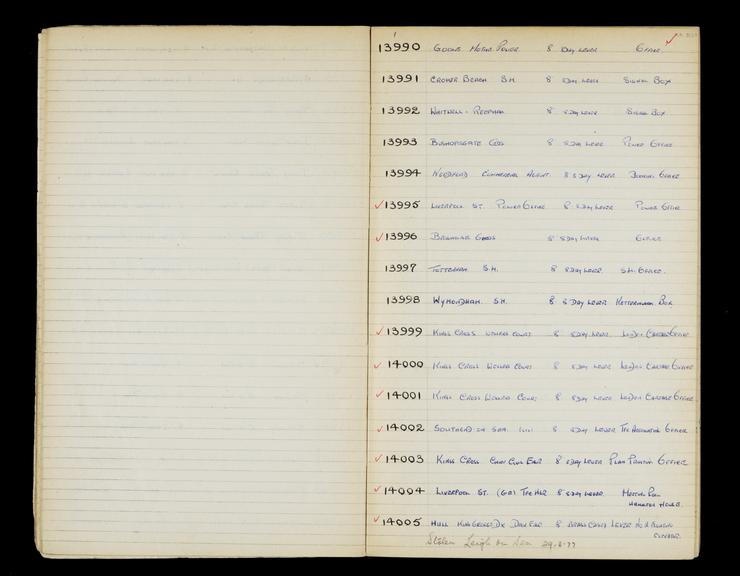 13990 GOODS MOTIVE POWER 8 8 DAY LEVER OFFICE.
13991 CROMER BEACH S.M. 8 8 DAY LEVER SIGNAL BOX
13992 WHITWELL - REEPHAM 8 8 DAY LEVER SIGNAL BOX
13993 BISHOPSGATE GDS 8 8 DAY LEVER POWER OFFICE
13994 WOODFORD COMMERCIAL AGENT. 8 8 DAY LEVER BOOKING OFFICE
13995 LIVERPOOL ST. POWER OFFICE 8 8 DAY LEVER POWER OFFICE
13996 GOODS 8 8 DAY LEVER OFFICE
13997 TOTTENHAM S.M. 8 8 DAY LEVER S.M. OFFICE.
13998 WYMONDHAM. S.M. 8 8 DAY LEVER KETTERINGHAM BOX
13999 KINGS CROSS COURT 8 8 DAY LEVER LONDON OFFICE
14000 KINGS CROSS COURT 8 8 DAY LEVER LONDON OFFICE
14001 KINGS CROSS COURT 8 8 DAY LEVER LONDON OFFICE
14002 SOUTHEND ON SEA 8 8 DAY LEVER OFFICE
14003 KINGS CROSS CHIEF CIVIL ENGR 8 8 DAY LEVER PLAN PRINTING OFFICE
14004 LIVERPOOL ST. (GE) TFC MGR 8 8 DAY LEVER MEETING ROOM
HAMILTON HOUSE.
14005 HULL DIV ENGR 8 LEVER
Stolen Leigh on Sea 29-6-77